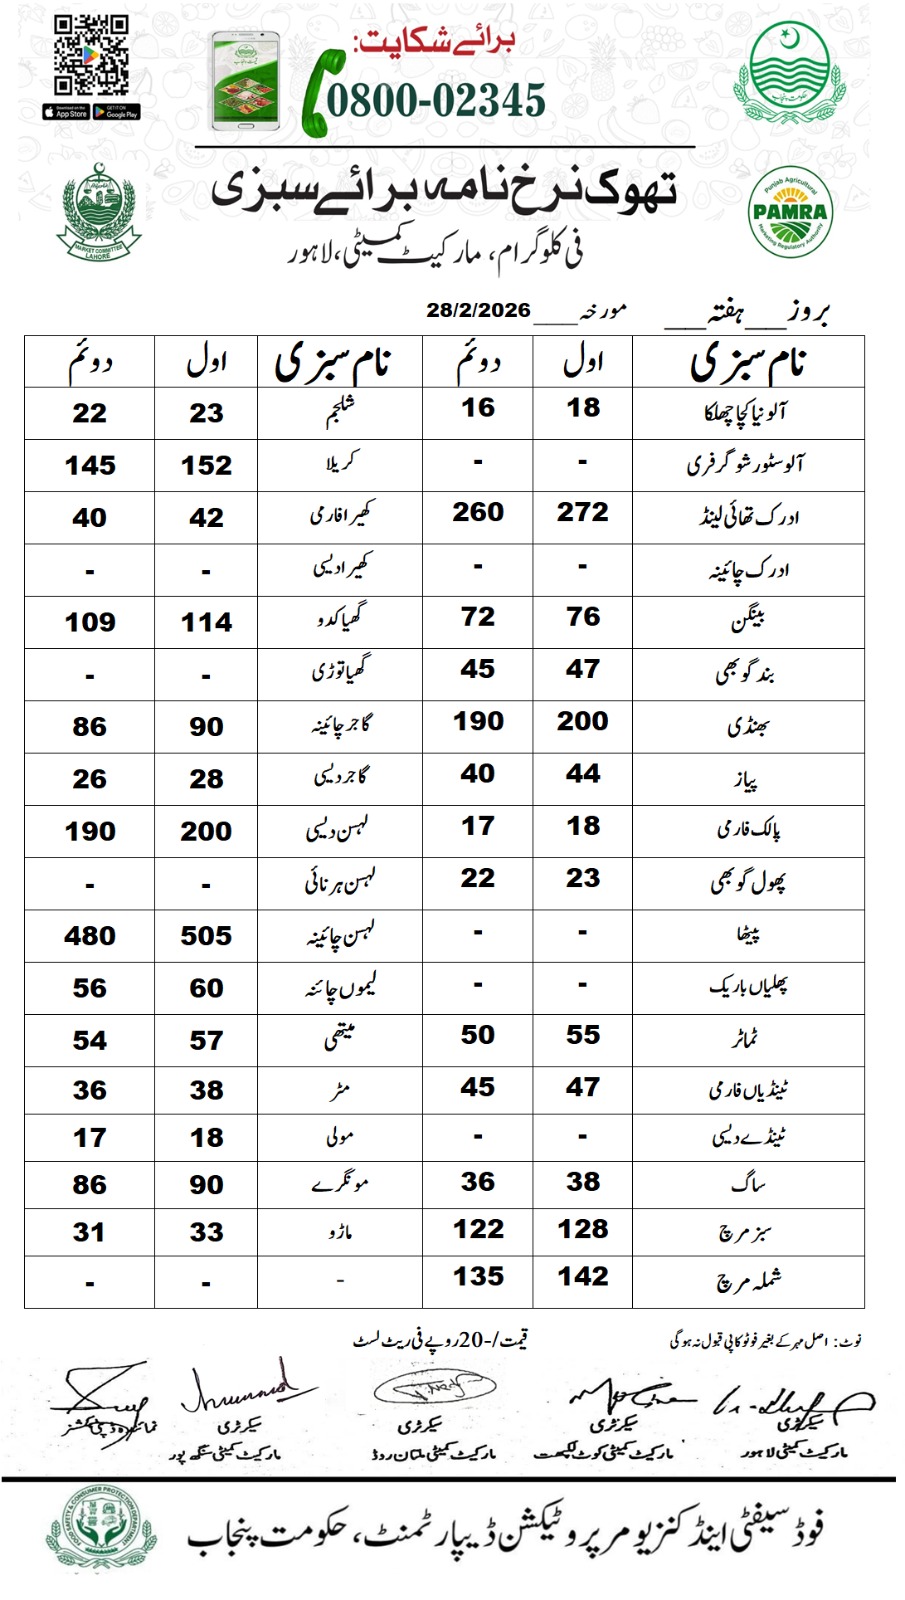 برائے شکایت:
0800-02345
Download on the App Store
GET IT ON Google Play
حکومت پنجاب
تھوک نرخ نامہ برائے سبزی
فی کلوگرام، مارکیٹ کمیٹی، لاہور
MARKET COMMITTEE LAHORE
Punjab Agricultural
PAMRA
Marketing Regulatory Authority
بروز___ہفتہ___ مورخہ ___ 28/2/2026
نام سبزی اول دوئم نام سبزی اول دوئم
آلو نیا کچا چھلکا 18 16 شلجم 23 22
آلو سٹور شوگر فری - - کریلا 152 145
ادرک تھائی لینڈ 272 260 کھیرا فارمی 42 40
ادرک چائینہ - - کھیرا دیسی - -
بینگن 76 72 گھیا کدو 114 109
بند گوبھی 47 45 گھیا توڑی - -
بھنڈی 200 190 گاجر چائینہ 90 86
پیاز 44 40 گاجر دیسی 28 26
پالک فارمی 18 17 لہسن دیسی 200 190
پھول گوبھی 23 22 لہسن ہرنائی - -
پیٹھا - - لہسن چائینہ 505 480
پھلیاں باریک - - لیموں چائنہ 60 56
ٹماٹر 55 50 میتھی 57 54
ٹینڈیاں فارمی 47 45 مٹر 38 36
ٹینڈے دیسی - - مولی 18 17
ساگ 38 36 مونگرے 90 86
سبز مرچ 128 122 ماڑو 33 31
شملہ مرچ 142 135 - - -
نوٹ: اصل مہر کے بغیر فوٹو کاپی قبول نہ ہوگی قیمت/-20روپے فی ریٹ لسٹ
سیکرٹری سیکرٹری سیکرٹری سیکرٹری نمائندہ ڈپٹی کمشنر
مارکیٹ کمیٹی لاہور مارکیٹ کمیٹی کوٹ لکھپت مارکیٹ کمیٹی ملتان روڈ مارکیٹ کمیٹی سنگھ پور
FOOD SAFETY & CONSUMER PROTECTION DEPARTMENT
فوڈ سیفٹی اینڈ کنزیومر پروٹیکشن ڈیپارٹمنٹ، حکومت پنجاب